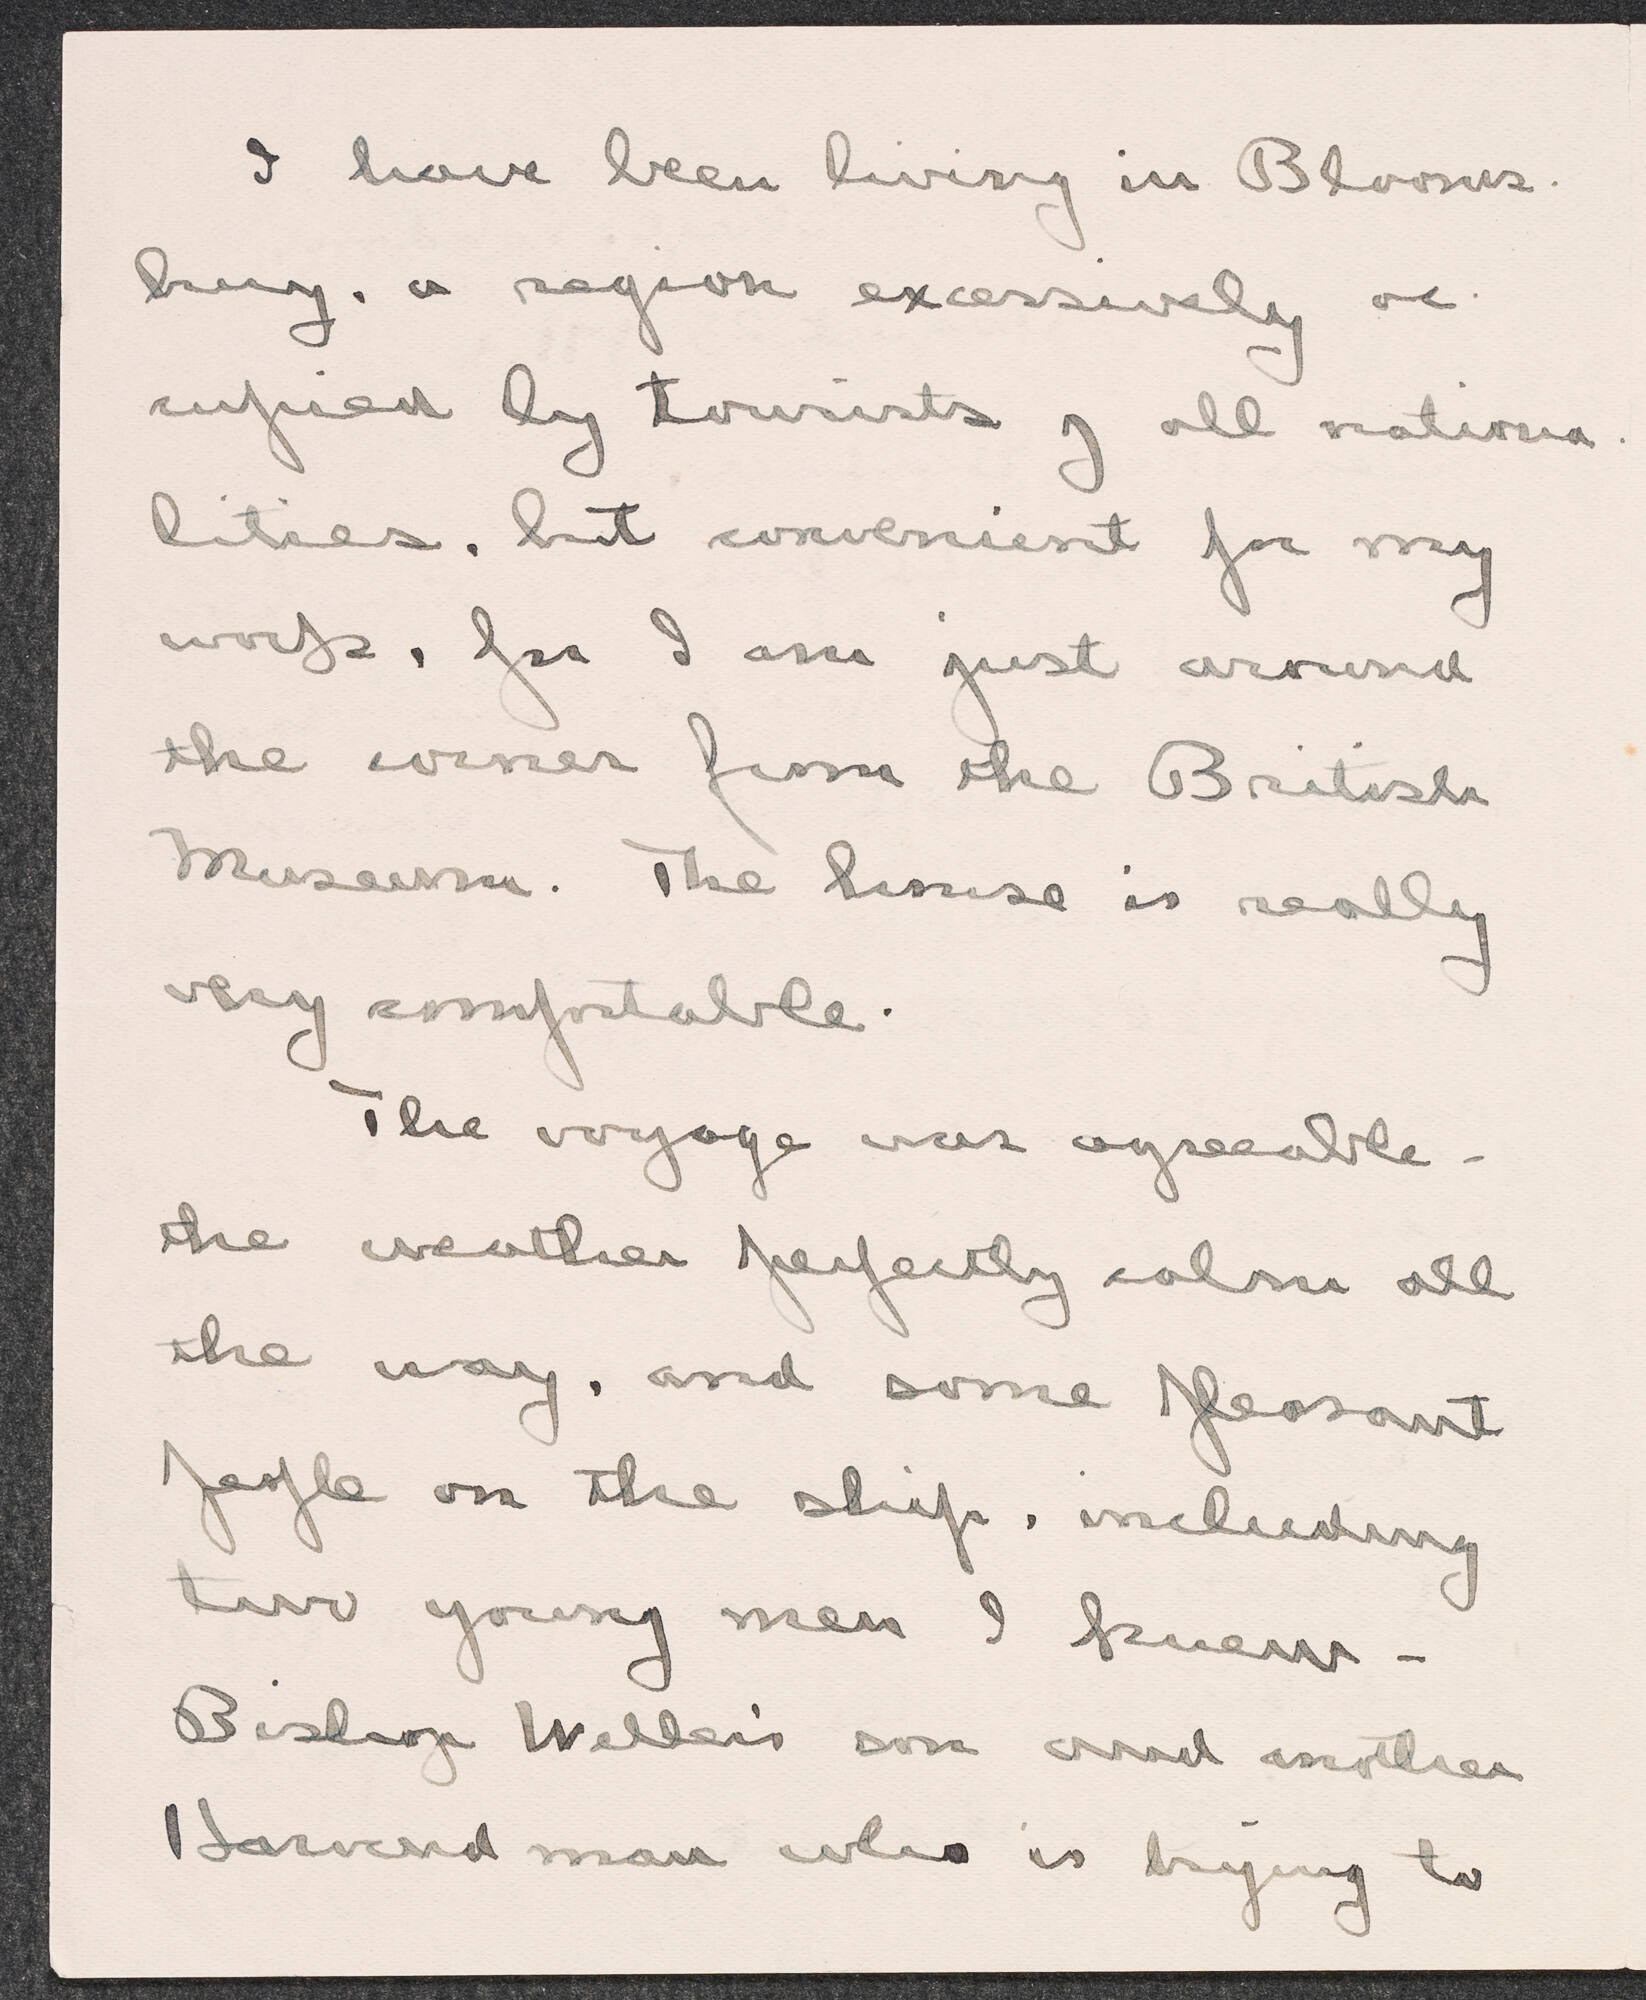 I have been living in Blooms-
bury, a region excessively oc-
cupied by tourists of all nationa-
lities, but convenient for my
work, for I am just around
the corner from the British
Museum. The house is really
very comfortable.
The voyage was agreeable -
the weather perfectly calm all
the way, and some pleasant
people on the ship, including
two young men I knew -
Bishop Weller's son and another
Harvard man who is trying to